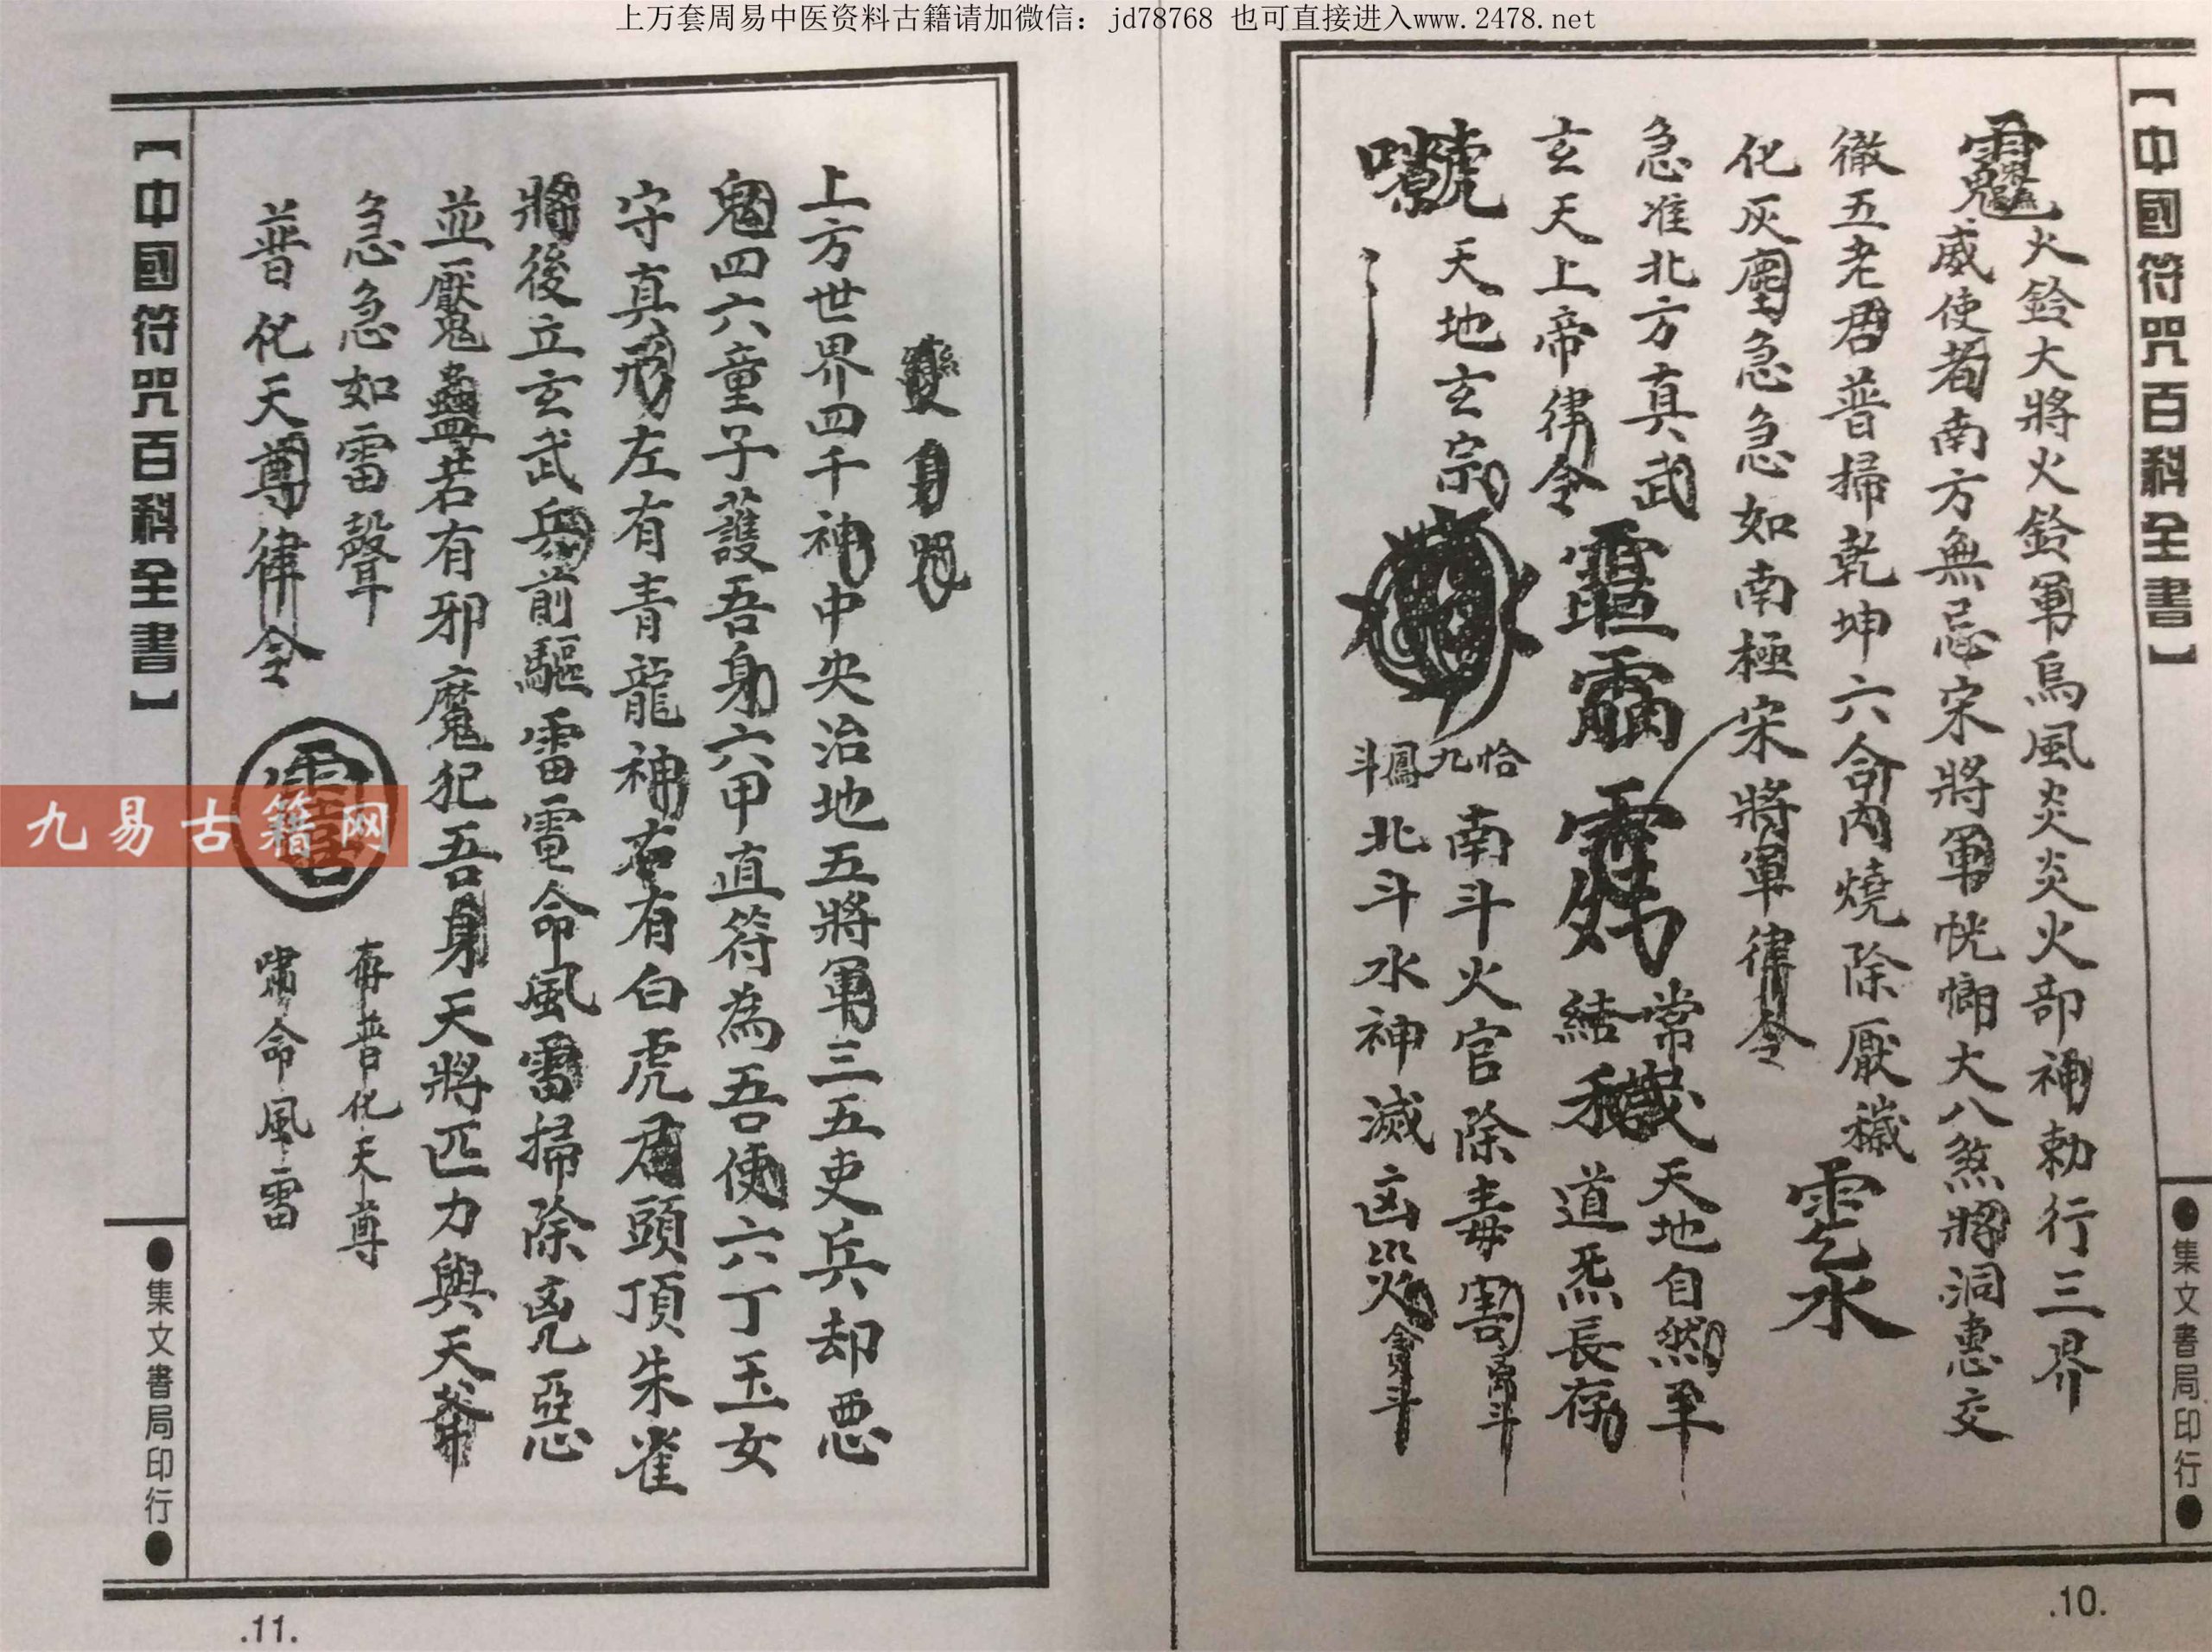 上万套周易中医资料古籍请加微信：jd78768 也可直接进入www.2478.net
【中國符咒百科全書】
●集文書局印行●
火鈴大將火鈴軍烏風炎炎火部神勅行三界
威使者南方無忌宋將軍恍惚大八煞將洞惠交
徹五老君普掃乾坤六合內燒除厭穢
化灰塵急急如南極宋將軍律令
水
急准北方真武
常
天地自然
玄天上帝律令
結
道炁長存
天地玄宗
恰九鳳斗
南斗火官除毒害
北斗水神滅凶災
.10.
變身咒
上方世界四千神中央治地五將軍三五吏兵却惡
鬼四六童子護吾身六甲直符為吾使六丁玉女
守真形左有青龍神右有白虎君頭頂朱雀
將後立玄武兵前驅雷電命風雷掃除兇惡
並魘蠱若有邪魔犯吾身天將匹力與天
急急如雷聲
普化天尊律令
普化天尊
嘯命風雷
【中國符咒百科全書】
●集文書局印行●
.11.
九易古籍网